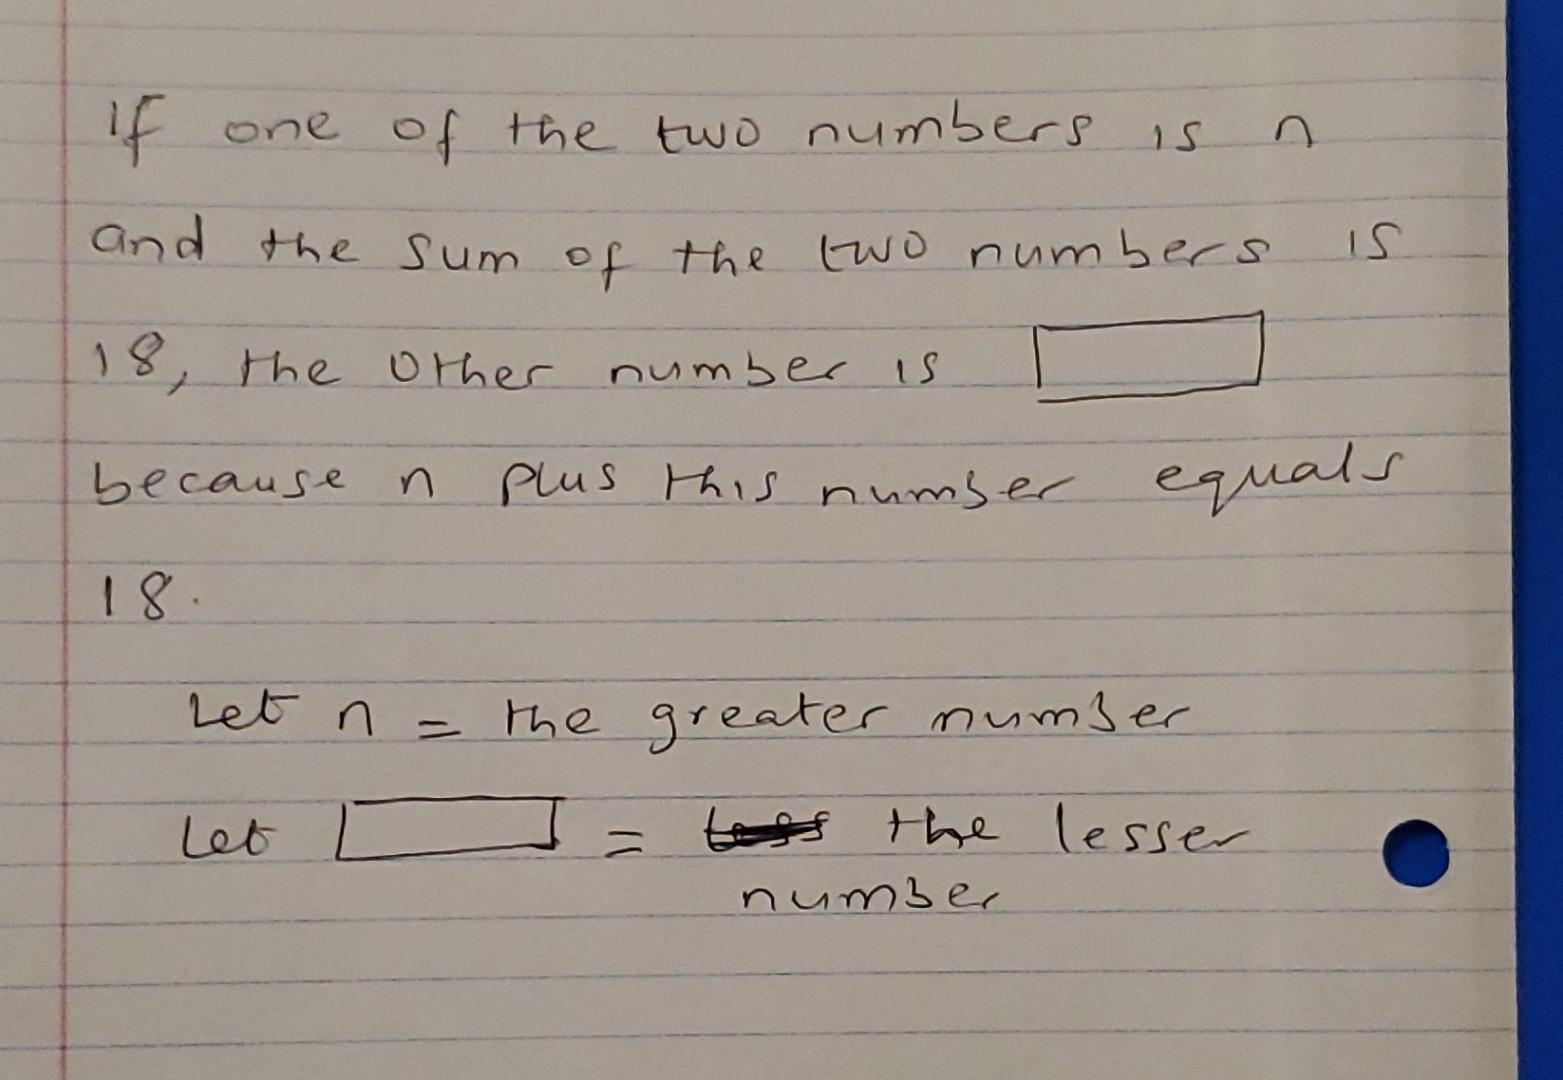 If one of the two numbers is n
and the sum of the two numbers is
18, the other number is
because n plus this number equals
18.
Let n = the greater number
Let = the lesser
number